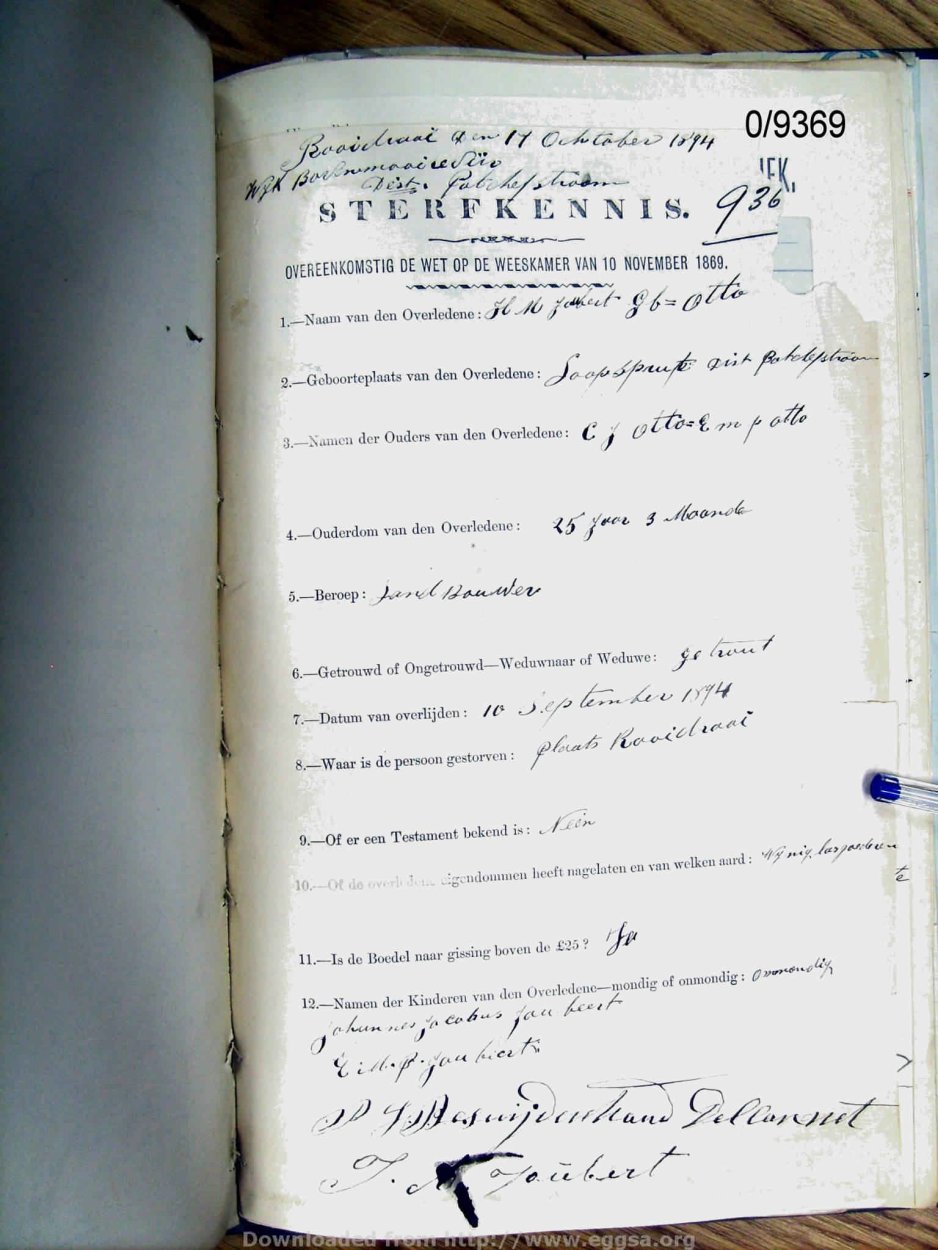 0/9369
Rooidraai den 17 October 1894
WyK
Dist. Potchefstroom
936
STERFKENNIS.
OVEREENKOMSTIG DE WET OP DE WEESKAMER VAN 10 NOVEMBER 1869.
1.—Naam van den Overledene: H M Joubert Gb= Otto
2.—Geboorteplaats van den Overledene: Loopspruit Dist Potchefstroom
3.—Namen der Ouders van den Overledene: C J Otto = E M P Otto
4.—Ouderdom van den Overledene: 25 Jaar 3 Maande
5.—Beroep: Land Bouwer
6.—Getrouwd of Ongetrouwd—Weduwnaar of Weduwe: getrout
7.—Datum van overlijden: 10 September 1894
8.—Waar is de persoon gestorven: plaats Rooidraai
9.—Of er een Testament bekend is: Neen
10.—Of de overledene eigendommen heeft nagelaten en van welken aard:
11.—Is de Boedel naar gissing boven de £25? Ja
12.—Namen der Kinderen van den Overledene—mondig of onmondig: onmondig
Johannes Jacobus Joubeert
E.M.P. Joubiert
J. Joubert
Downloaded from http://www.eggsa.org